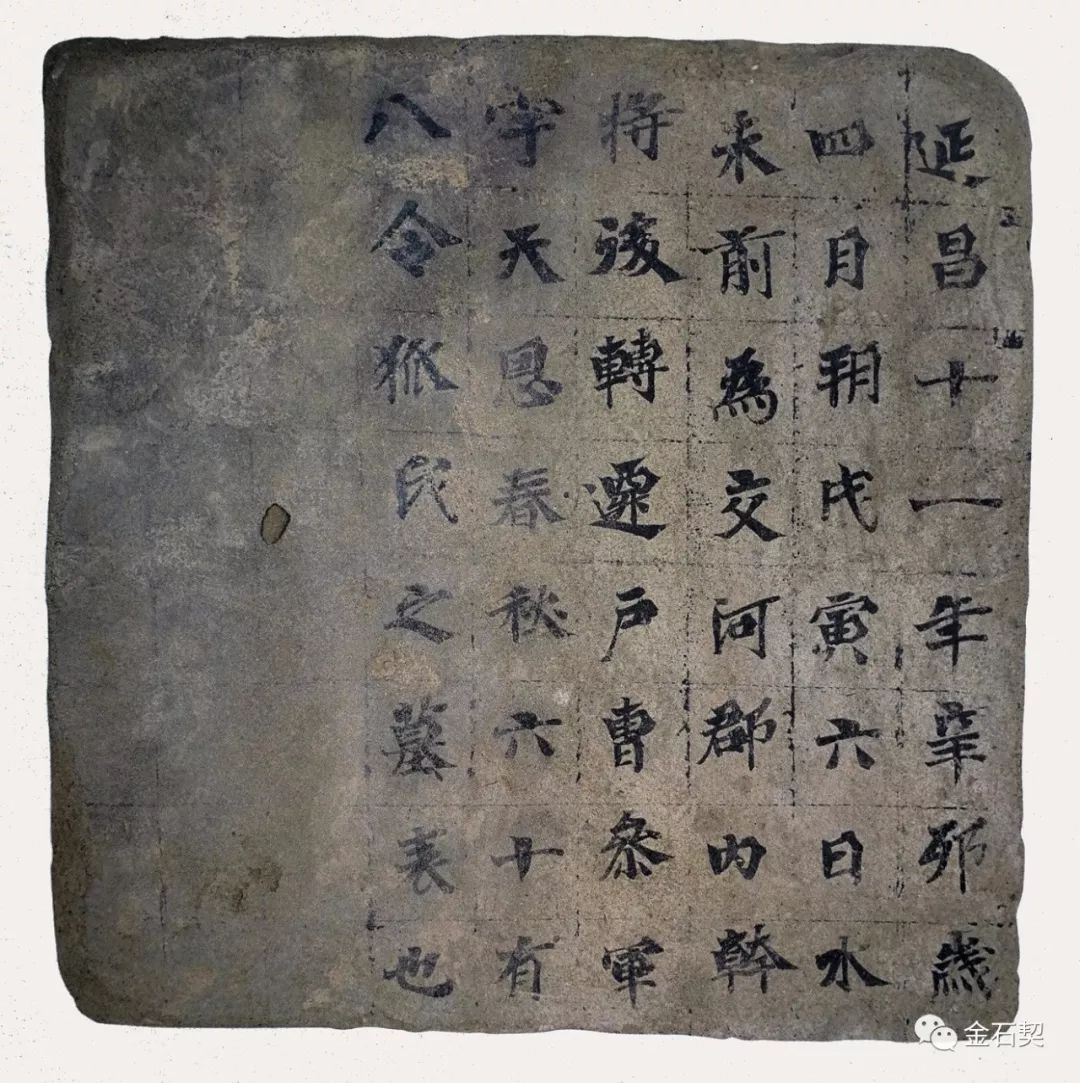 延昌十一年辛卯歲
四月朔戊寅六日水
来前為交河郡内幹
将後轉遷户曹叅軍
字天恩春秋六十有
八令狐氏之墓表也
金石契